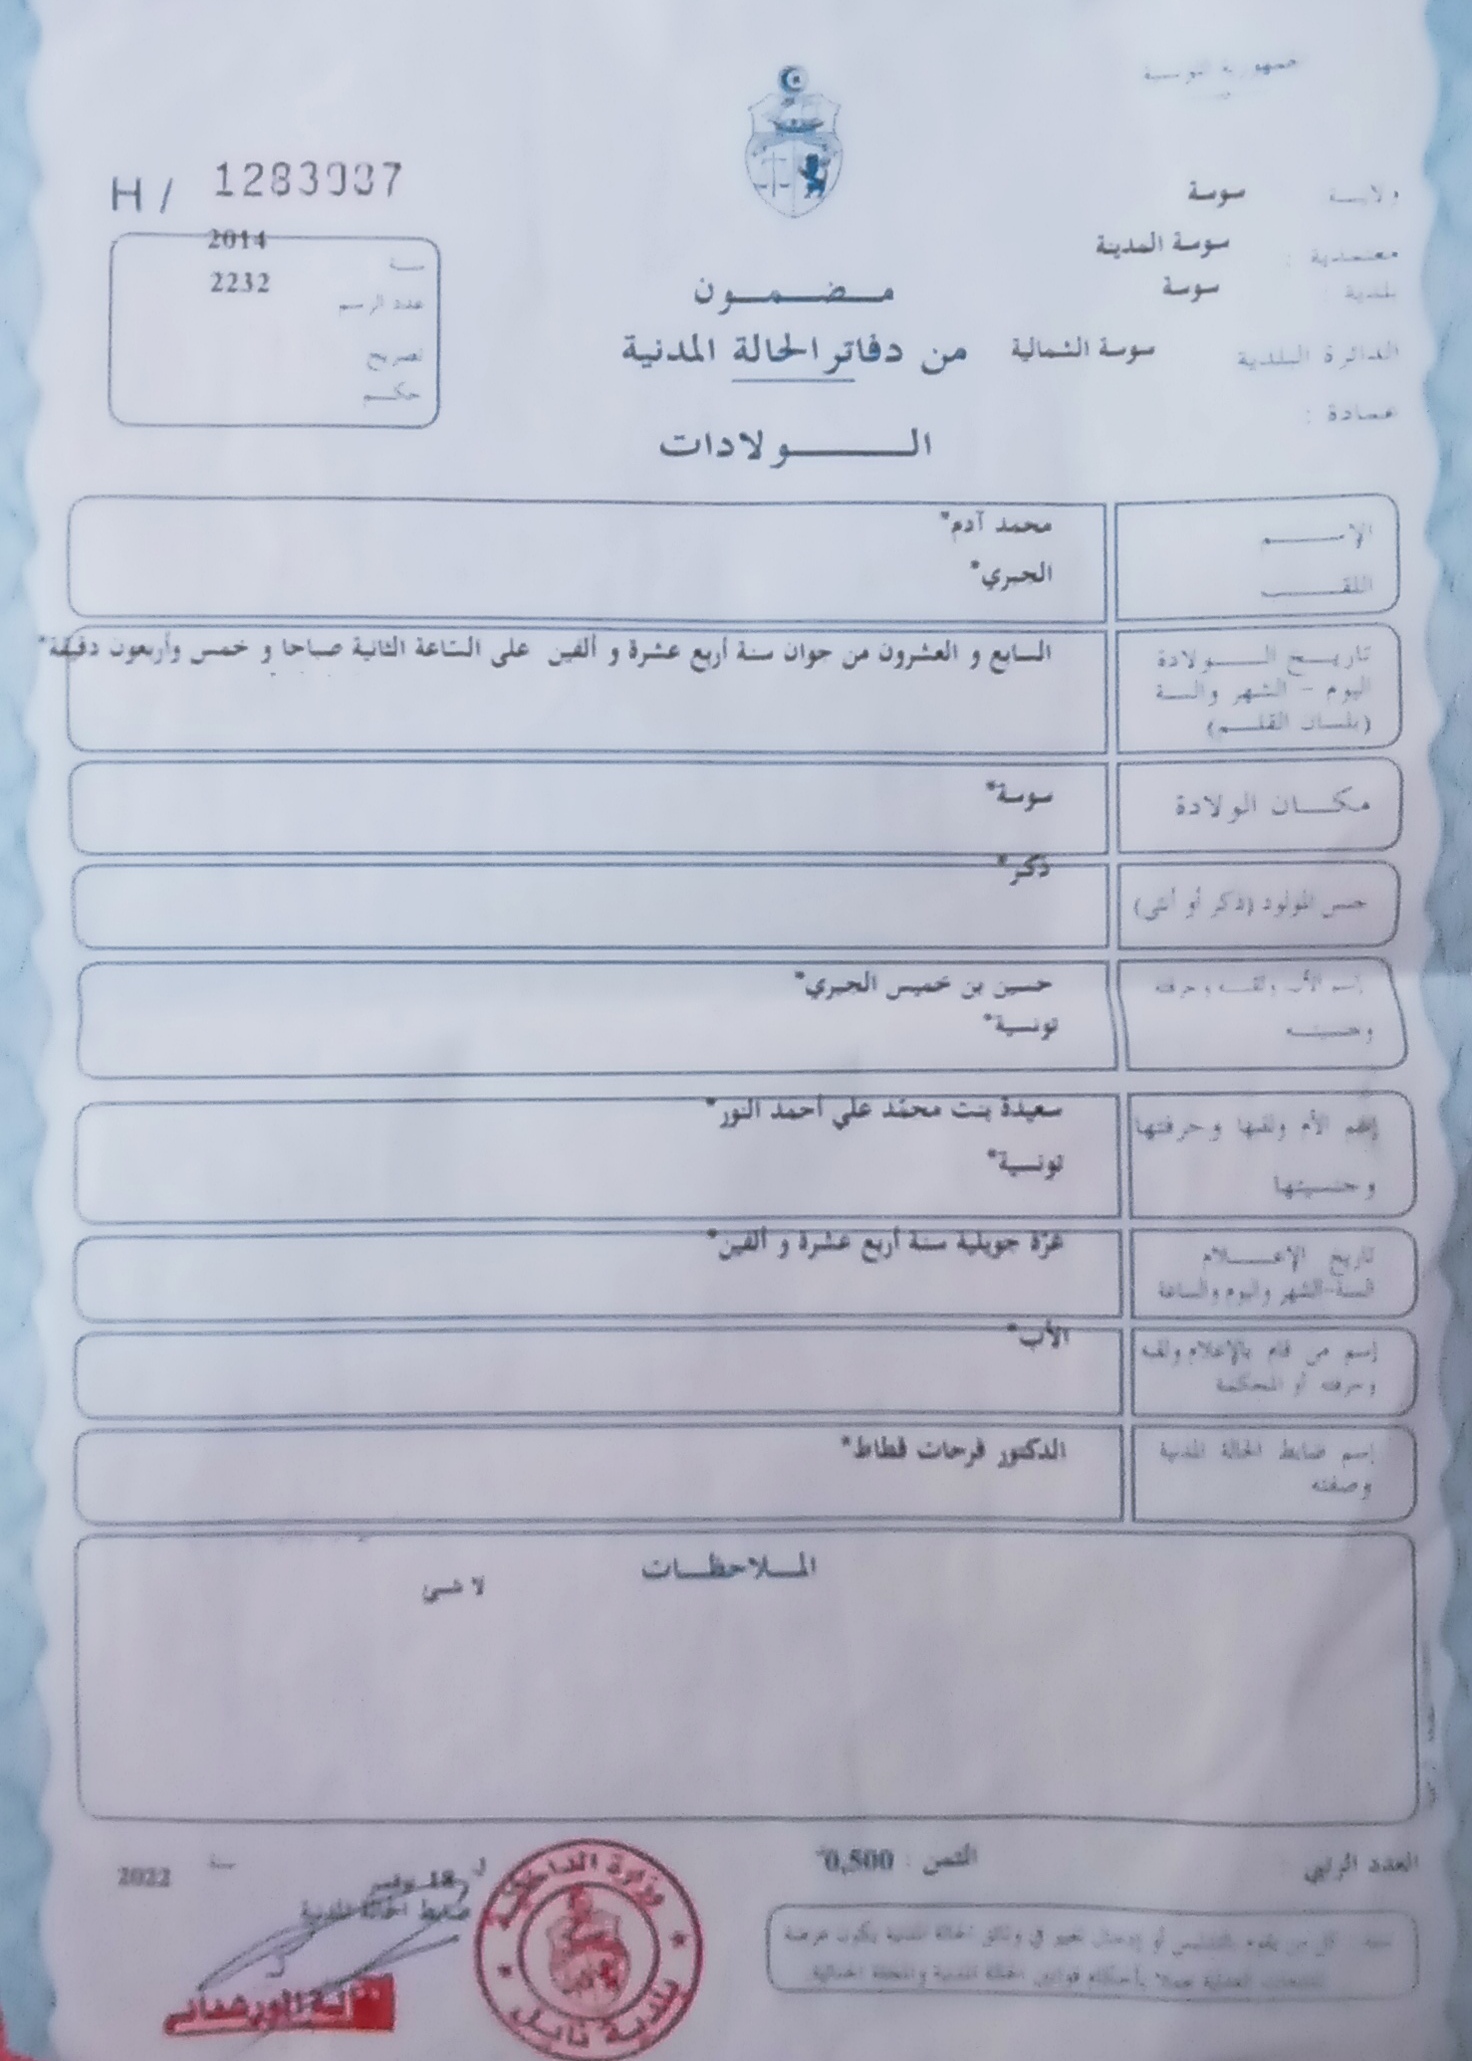 الجمهورية التونسية
H / 1283037
ولايـــة سوسة
معتمدية : سوسة المدينة
بلدية : سوسة
الدائرة البلدية سوسة الشمالية
عمادة :
سنة 2014
عدد الرسم 2232
تصريح
حكم
مـضـمـون
من دفاتر الحالة المدنية
الـــولادات
الإســـم محمد آدم*
اللقـــب الجبري*
تاريـخ الـــولادة السابع و العشرون من جوان سنة أربع عشرة و ألفين على الساعة الثانية صباحا و خمس وأربعون دقيقة*
اليوم - الشهر والسنة
(بلسان القلـم)
مكـــان الولادة سوسة*
جنس المولود (ذكر أو أنثى) ذكر*
إسم الأب ولقبه وحرفته حسين بن خميس الجبري*
وجنسيته تونسية*
إسم الأم ولقبها وحرفتها سعيدة بنت محمّد علي أحمد النور*
وجنسيتها تونسية*
تاريخ الإعـــلام غرّة جويلية سنة أربع عشرة و ألفين*
السنة-الشهر واليوم والساعة
إسم من قام بالإعلام ولقبه الأب*
وحرفته أو المحكمة
إسم ضابط الحالة المدنية الدكتور فرحات قطاط*
وصفته
المـلاحظـات
لا شئ
العدد الرتبي :
الثمن : 0,500
تنبيه : كل من يقوم بالتدليس أو إدخال تغيير في وثائق الحالة المدنية يكون عرضة
للتتبعات العدلية عملا بأحكام قوانين الحالة المدنية والمجلة الجنائية
وزارة الداخلية
بلدية نابل
في 18 نوفمبر سنة 2022
ضابط الحالة المدنية
الورشفاني